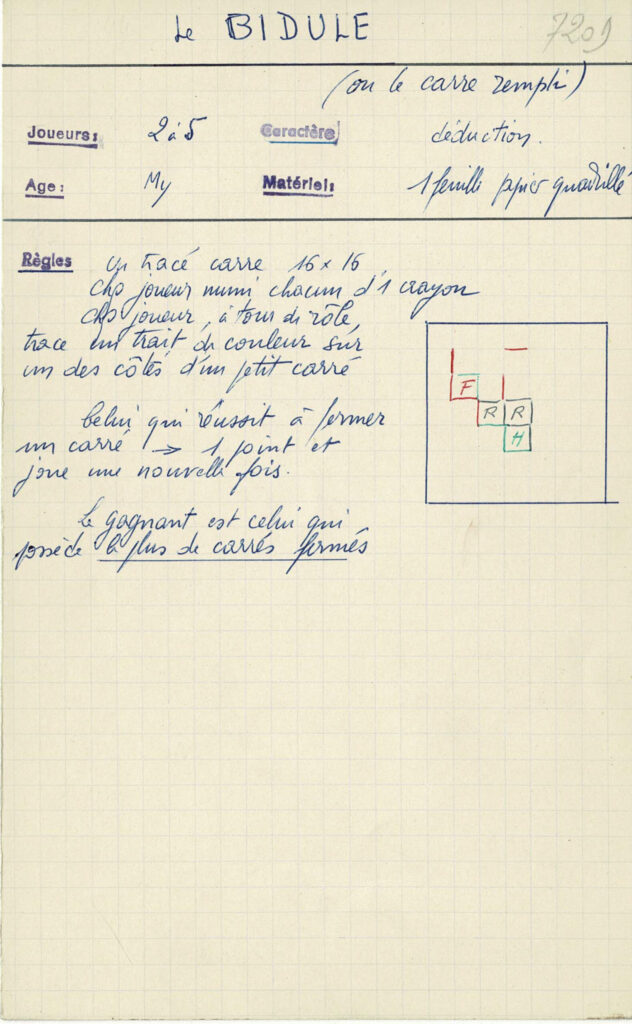 Le BIDULE
7209
(ou le carré rempli)
Joueurs: 2 à 5 Caractère déduction.
Age: My Matériel: 1 feuille papier quadrillé
Règles un tracé carré 16 x 16
chq joueur muni chacun d'1 crayon
chq joueur, à tour de rôle,
trace un trait de couleur sur
un des côtés d'un petit carré
Celui qui réussit à fermer
un carré → 1 point et
joue une nouvelle fois.
Le gagnant est celui qui
possède le plus de carrés fermés
F
R R
H